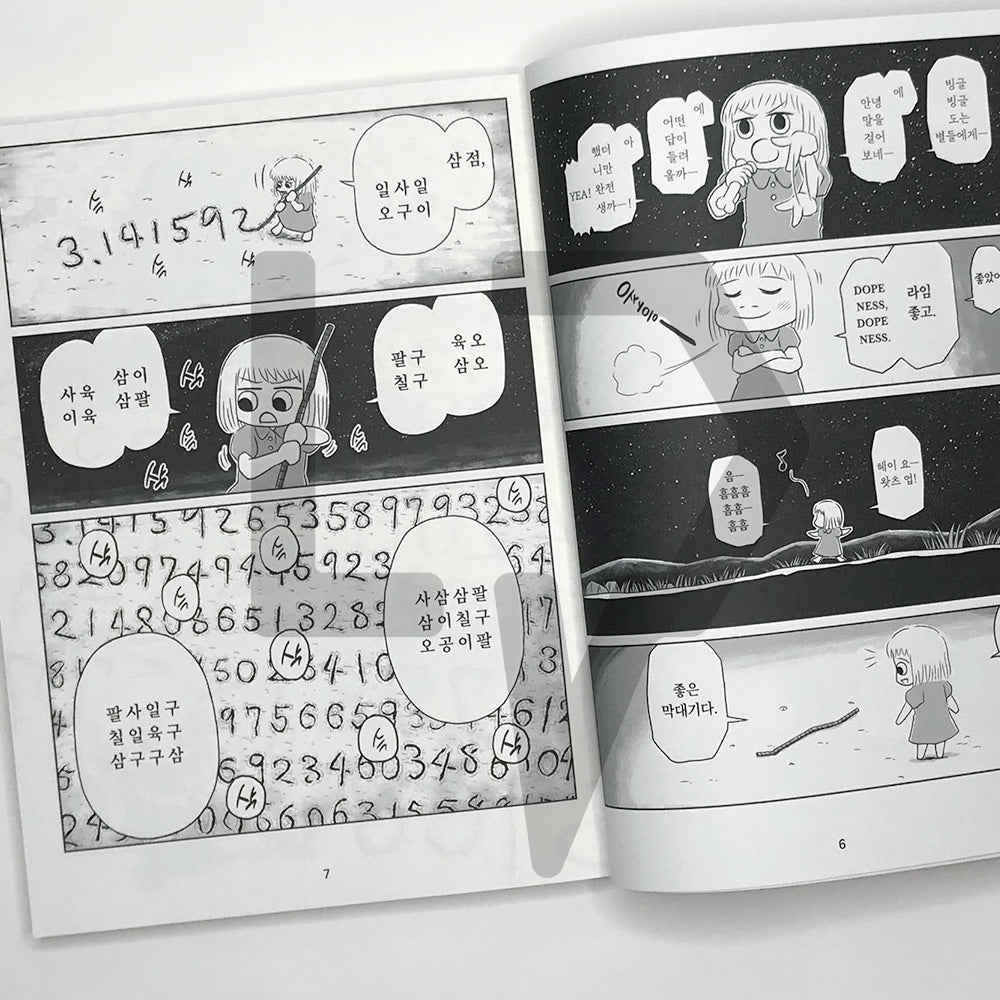 빙글
빙글
도는
별들에게—
에
안녕
말을
걸어
보네—
에
어떤
답이
들려
올까—
아
했더
니만
YEA! 완전
생까—!
좋았어
라임
좋고.
DOPE
NESS,
DOPE
NESS.
헤이 요—
왓츠 업!
음—
흠흠흠
흠흠—
흠흠
좋은
막대기다.
6
삼점,
일사일
오구이
슥
삭
3.141592
슥
삭
육오
삼오
팔구
칠구
삼이
삼팔
사육
이육
삭
슥
슥
삭
슥
3.141592653589793238
슥
삭
슥
58 09749445923 64
슥
사삼삼팔
삼이칠구
오공이팔
2148 86513282 17
삭
81 502 8410 3
팔사일구
칠일육구
삼구구삼
4 975665933 4612
슥
삭
6 9234603486 04
삭
24 6606315588
7